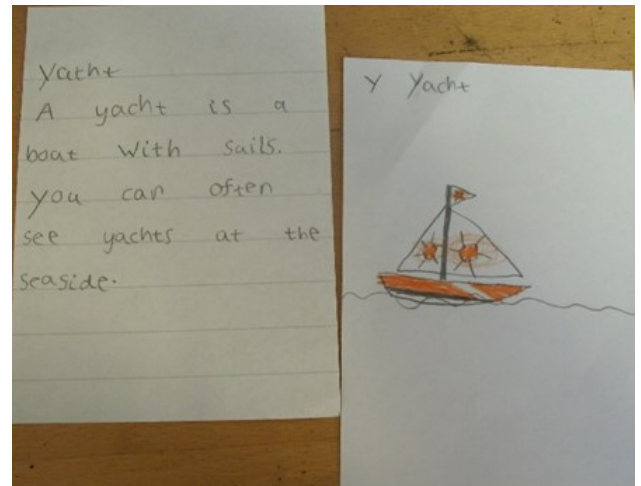 Yatht
A yacht is a
boat with sails.
you can often
see yachts at the
seaside.
Y Yacht